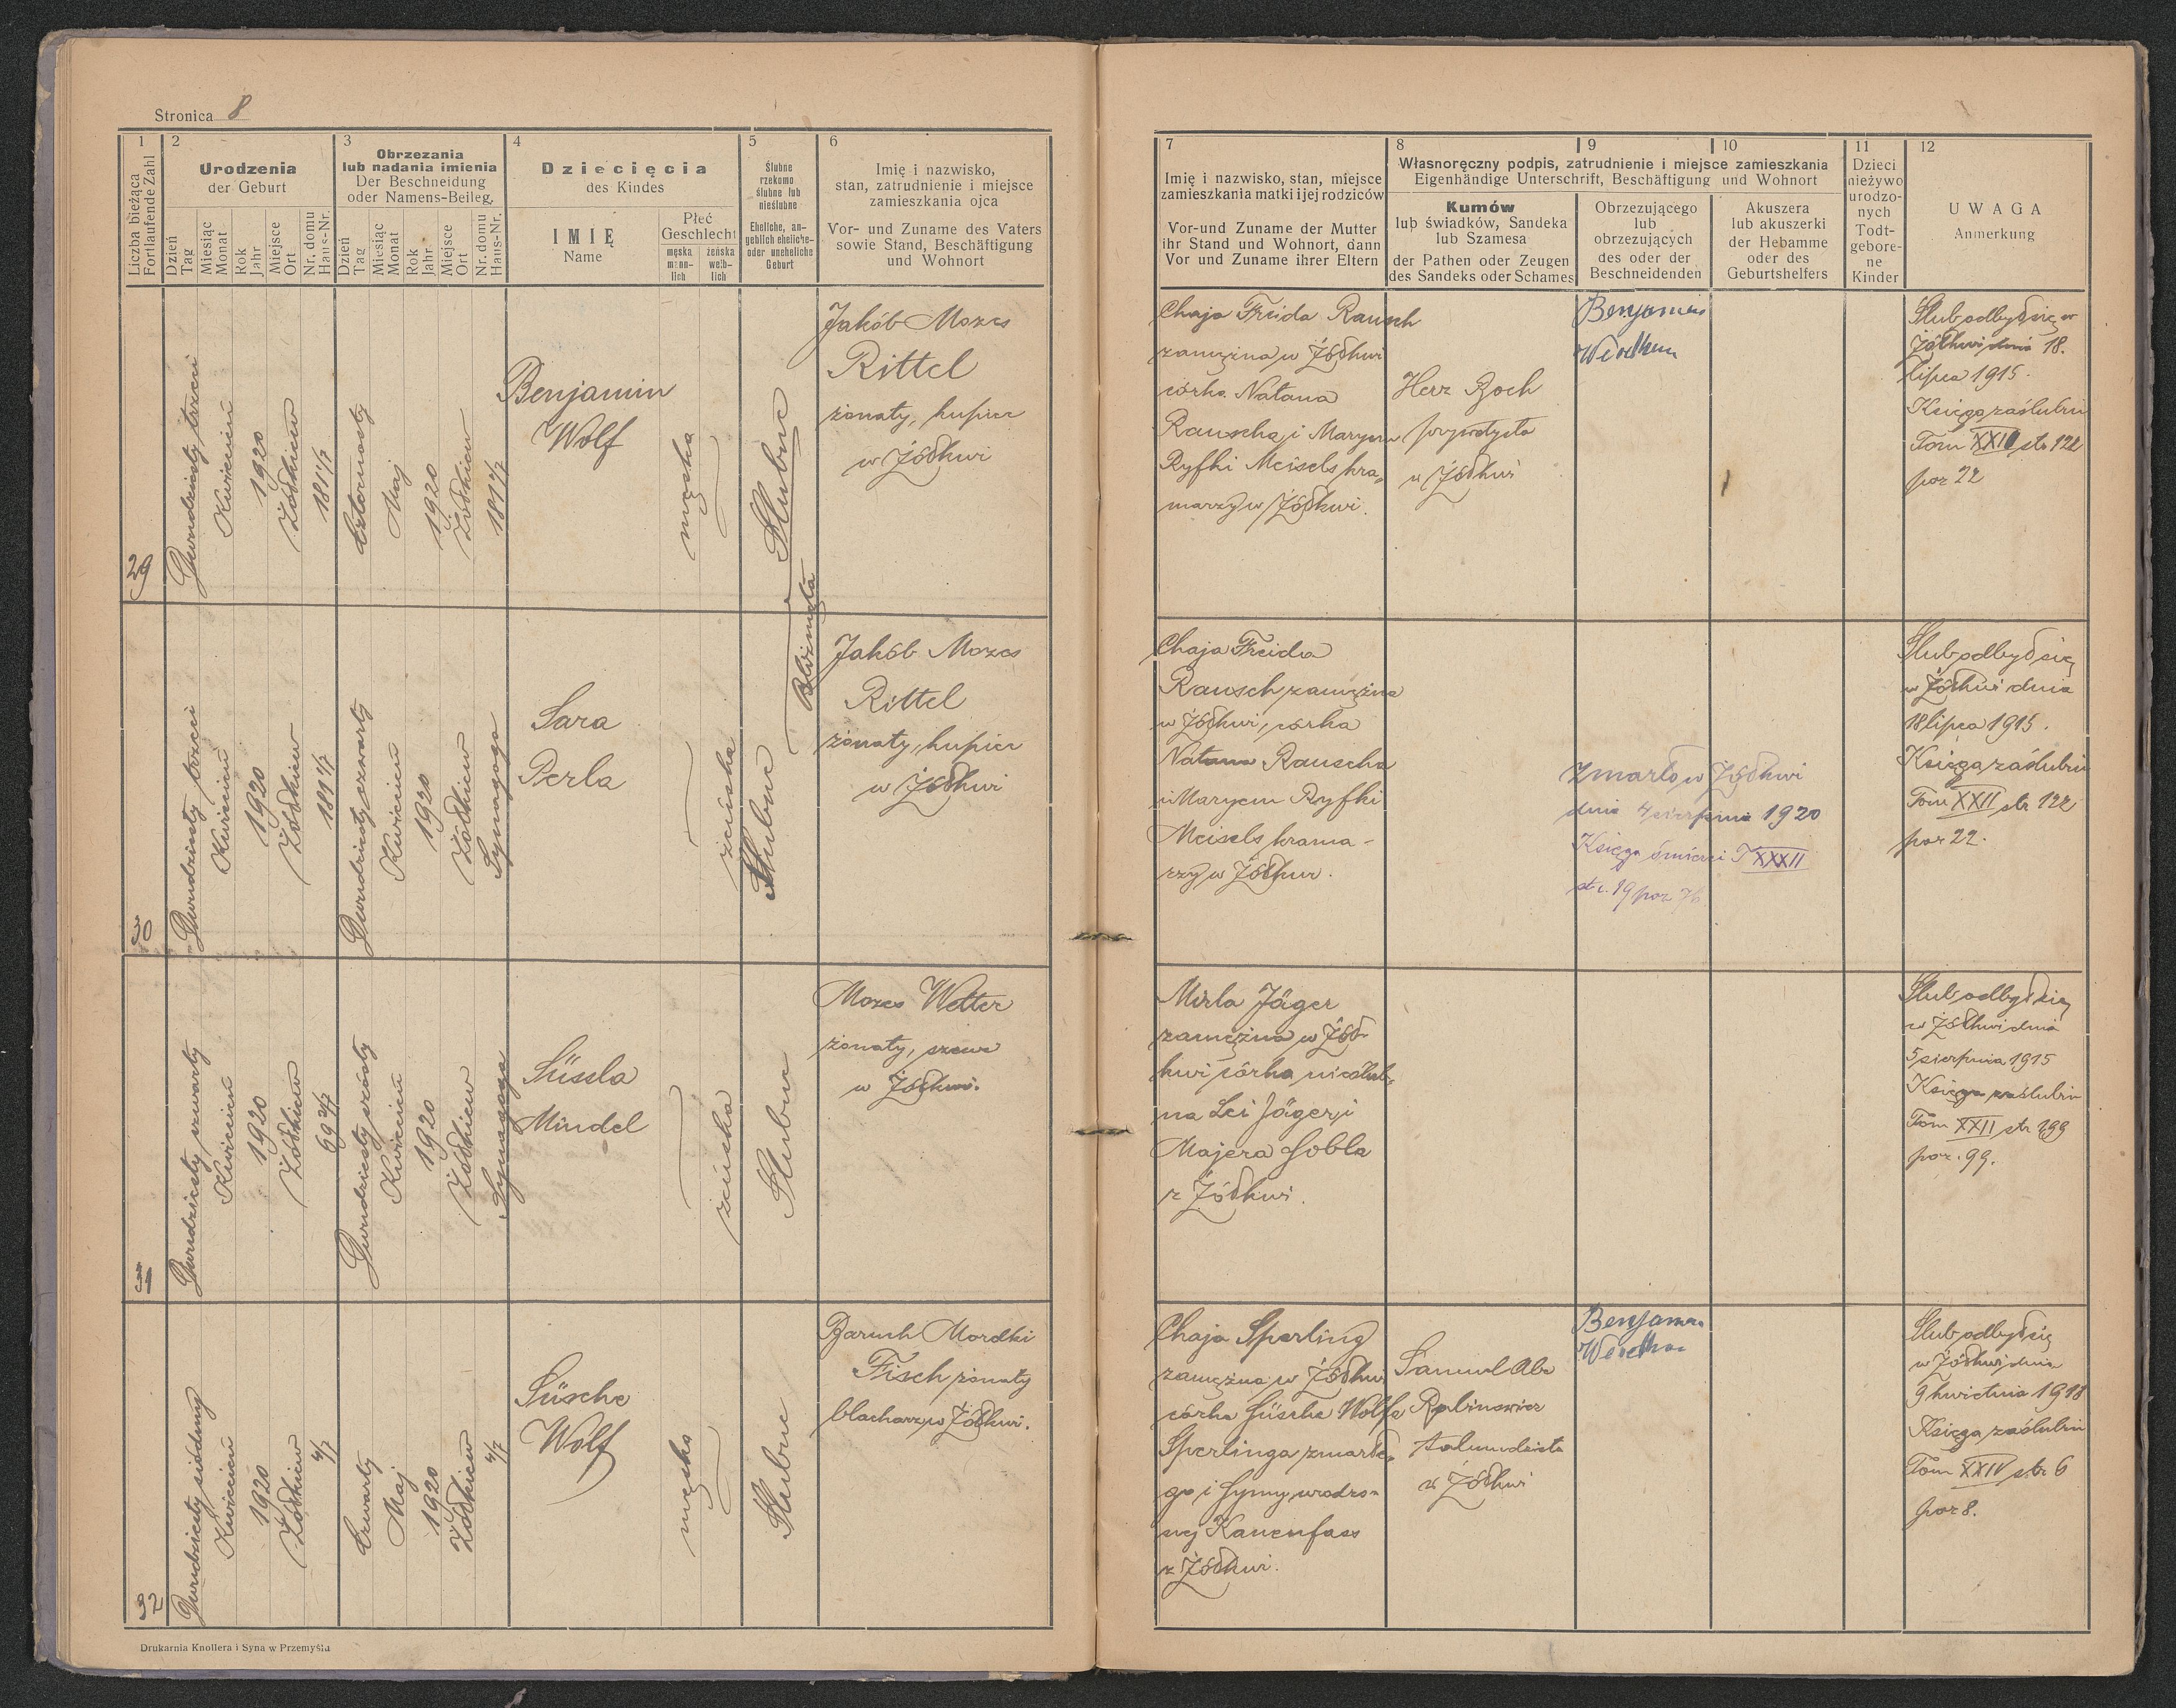 Stronica 8
1
Liczba bieżąca
Fortlaufende Zahl
2
Urodzenia
der Geburt
Dzień
Tag
Miesiąc
Monat
Rok
Jahr
Miejsce
Ort
Nr. domu
Haus-Nr.
3
Obrzezania
lub nadania imienia
Der Beschneidung
oder Namens-Beileg.
Dzień
Tag
Miesiąc
Monat
Rok
Jahr
Miejsce
Ort
Nr. domu
Haus-Nr.
4
Dziecięcia
des Kindes
IMIĘ
Name
Płeć
Geschlecht
męska
männ-
lich
żeńska
weib-
lich
5
Ślubne
rzekomo
ślubne lub
nieślubne
Eheliche, an-
geblich eheliche-
oder uneheliche
Geburt
6
Imię i nazwisko,
stan, zatrudnienie i miejsce
zamieszkania ojca
Vor- und Zuname des Vaters
sowie Stand, Beschäftigung
und Wohnort
7
Imię i nazwisko, stan, miejsce
zamieszkania matki i jej rodziców
Vor-und Zuname der Mutter
ihr Stand und Wohnort, dann
Vor und Zuname ihrer Eltern
8
9
10
Własnoręczny podpis, zatrudnienie i miejsce zamieszkania
Eigenhändige Unterschrift, Beschäftigung und Wohnort
Kumów
lub świadków, Sandeka
lub Szamesa
der Pathen oder Zeugen
des Sandeks oder Schames
Obrzezującego
lub
obrzezujących
des oder der
Beschneidenden
Akuszera
lub akuszerki
der Hebamme
oder des
Geburtshelfers
11
Dzieci
nieżywo
urodzo-
nych
Todt-
gebore-
ne
Kinder
12
UWAGA
Anmerkung
29
Dwudziesty trzeci
Kwiecień
1920
Żółkiew
181 1/2
Czternasty
Maj
1920
Żółkiew
Benjamin
Wolf
męska
Ślubne
Bliźnięta
Jakób Mozes
Rittel
żonaty, kupiec
w Żółkwi
Chaja Freida Rausch
zamężna w Żółkwi
córka Natana
Rauscha i Maryem
Ryfki Meisels kra-
marzy w Żółkwi.
Herz Boch
w Żółkwi
Benjamin
Ślub odbył się w
Żółkwi dnia 18.
lipca 1915.
Księga zaślubin
Tom XXII str 122
poz 22
30
Dwudziesty trzeci
Kwiecień
1920
Żółkiew
Dwudziesty czwarty
Kwiecień
1920
Żółkiew
Synagoga
Sara
Perla
żeńska
Ślubne
Jakób Mozes
Rittel
żonaty, kupiec
w Żółkwi
Chaja Freida
Rausch zamężna
w Żółkwi, córka
Natana Rauscha
i Maryem Ryfki
Meisels krama-
rzy w Żółkwi.
zmarła w Żółkwi
dnia 4 sierpnia 1920
Księga śmierci T XXXII
str. 19 poz 76
Ślub odbył się
w Żółkwi dnia
18 lipca 1915.
Księga zaślubin
Tom XXII str 122
poz 22.
31
Dwudziesty czwarty
Kwiecień
1920
Żółkiew
Dwudziesty szósty
Kwiecień
1920
Żółkiew
Synagoga
Süssla
Mindel
żeńska
Ślubne
Mozes Wetter
żonaty, szewc
w Żółkwi.
Mirla Jäger
zamężna w Żół-
kwi córka nieślub-
na Lei Jäger i
Majera Sobla
z Żółkwi.
Ślub odbył się
w Żółkwi dnia
5 sierpnia 1915
Księga zaślubin
Tom XXII str 199
poz. 99.
32
Dwudziesty siódmy
Kwiecień
1920
Żółkiew
Czwarty
Maj
1920
Żółkiew
Süsche
Wolf
męska
Ślubne
Baruch Mordki
Fisch żonaty
blacharz w Żółkwi.
Chaja Sperling
zamężna w Żółkwi
córka Süsche Wolfa
Sperlinga zmarłe-
go i Symy urodzo-
nej Kanenfass
z Żółkwi.
Samuel Aba
Rabinowicz
talmudista
w Żółkwi
Benjamin
Ślub odbył się
w Żółkwi dnia
9 kwietnia 1918
Księga zaślubin
Tom XXIV str 6
poz 8.
Drukarnia Knollera i Syna w Przemyślu